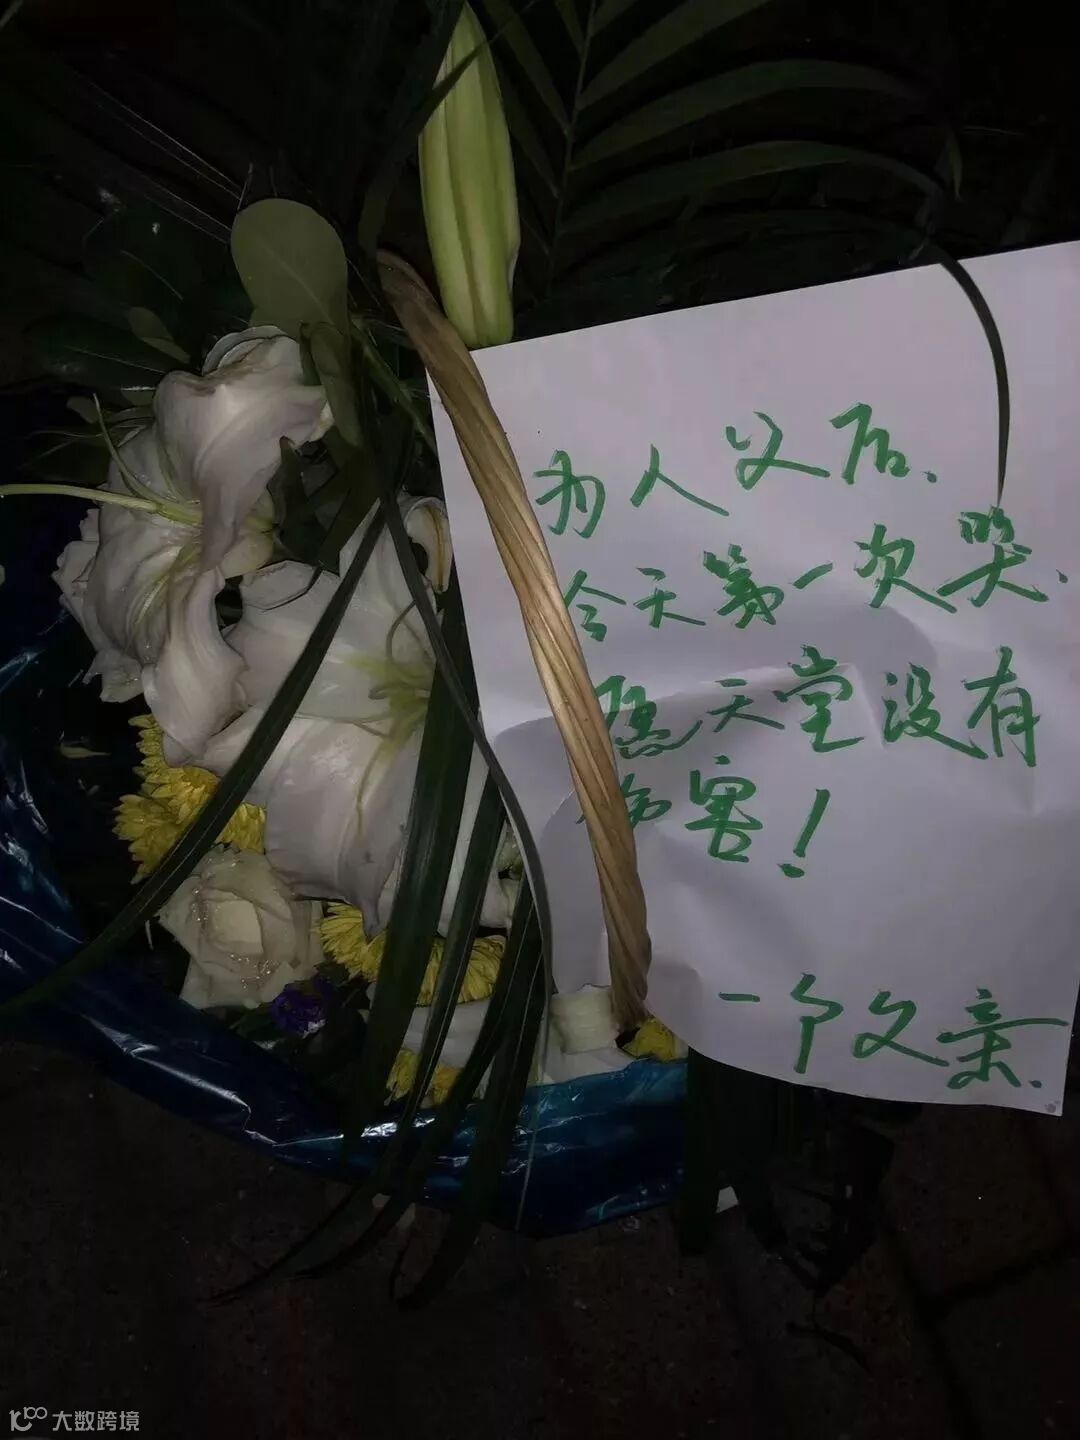 为人父后.
今天第一次哭.
愿天堂没有
伤害！
一个父亲.
大数跨境